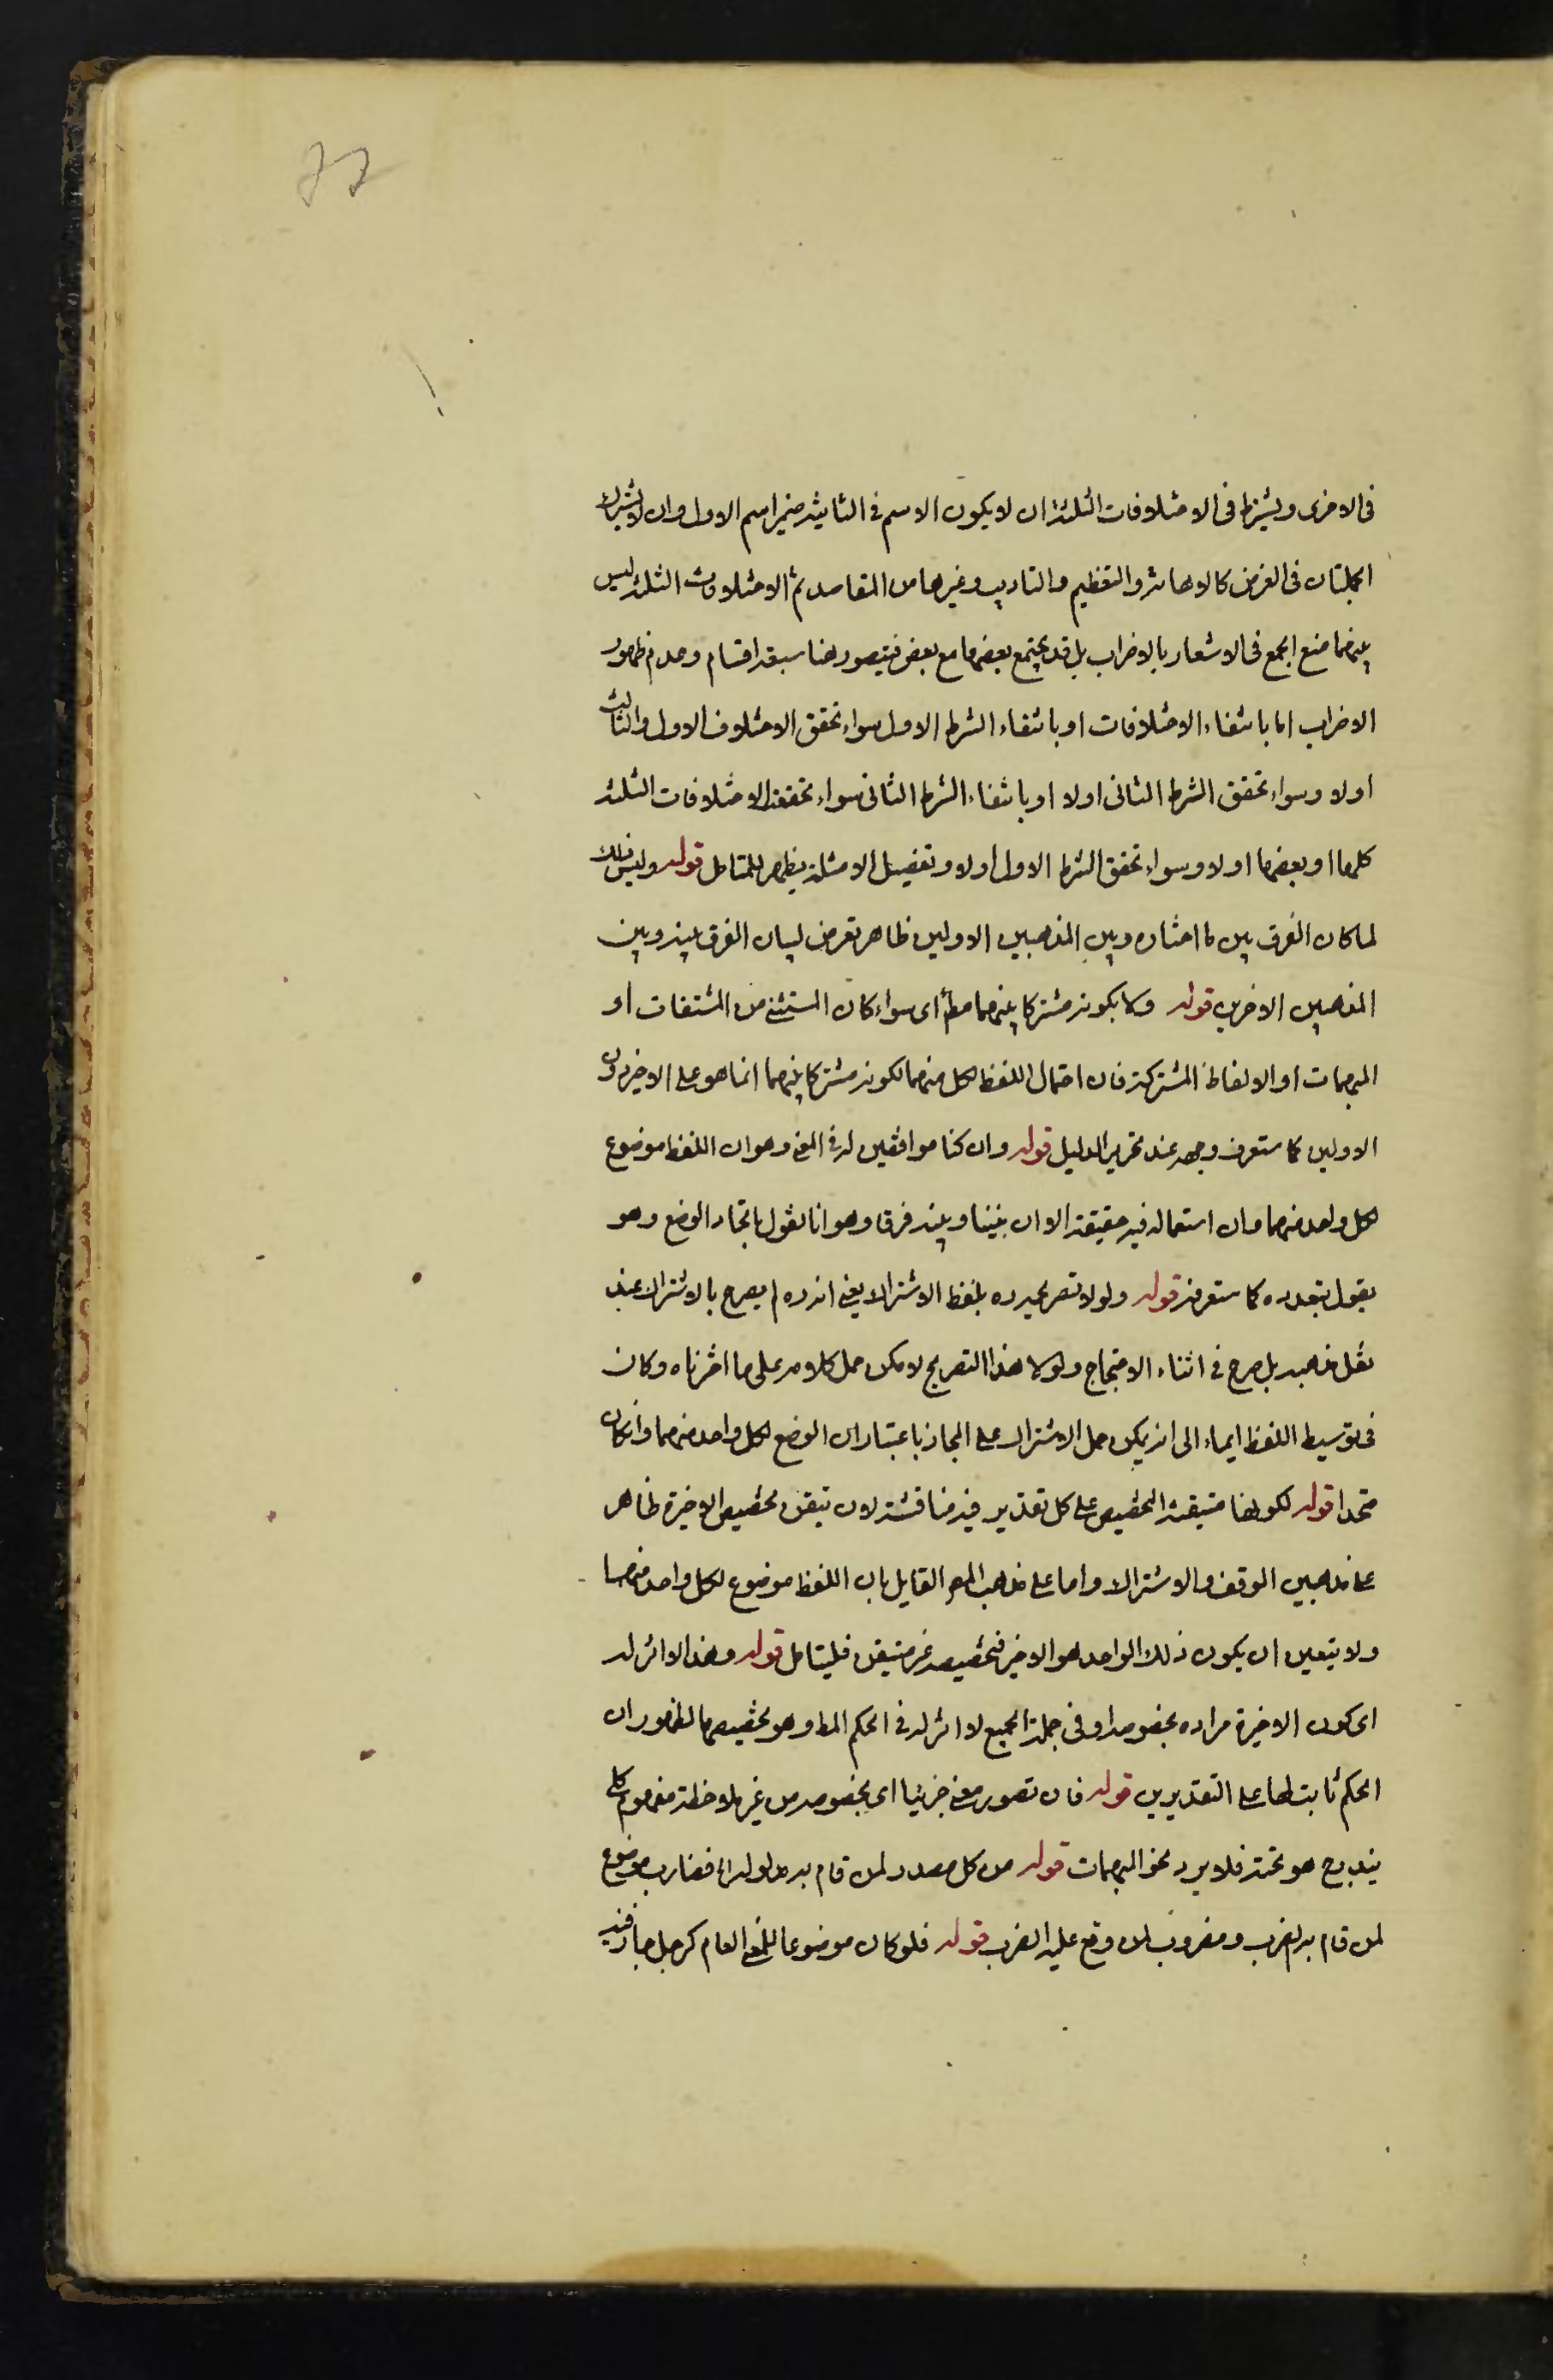 77
فى الاخرى ويشترط فى الاختلافات الثلثة ان لا يكون الاسم فى الثانية ضمير اسم الاول وان لا يشترك
الجملتان فى الغرض كالاهانة والتعظيم والتاديب وغيرها من المقاصد ثم الاختلافات الثلثة ليس
بينهما منع الجمع فى الاشعار بالاضراب بل قد يجتمع بعضها مع بعض فيتصور هنا سبعة اقسام وعدم ظهور
الاضراب اما بانتفاء الاختلافات او بانتفاء الشرط الاول سواء تحقق الاختلاف الاول والثالث
اولا وسواء تحقق الشرط الثانى اولا او بانتفاء الشرط الثانى سواء تحققت الاختلافات الثلثة
كلها او بعضها اولا وسواء تحقق الشرط الاول اولا وتفصيل الامثلة يظهر للمتامل قوله وليس ذلك
لما كان الفرق بين ما اختاره وبين المذهبين الاولين ظاهر تعرض لبيان الفرق بينه وبين
المذهبين الاخرين قوله وكا بكونه مشتركا بينهما مط أى سواء كان المستثنى من المشتقات او
المبهمات او الالفاظ المشتركة فان احتمال اللفظ لكل منهما لكونه مشتركا بينهما انما هو على الاخير دون
الاولين كما ستعرف وجهه عند تحرير الدليل قوله وان كنا موافقين له فى المعنى وهو ان اللفظ موضوع
لكل واحد منهما وان استعماله فيه حقيقة الا ان بيننا وبينه فرقا وهو انا نقول باتحاد الوضع وهو
يقول بتعدده كما ستعرفه قوله ولولا تصريحه ره بلفظ الاشتراك يعنى انه ره لم يصرح بالاشتراك عند
نقل مذهبه بل صرح فى اثناء الاحتجاج ولولا هذا التصريح لامكن حمل كلامه على ما اخترناه وكان
فى توسيط اللفظ ايماء الى انه يمكن حمل الاشتراك على المجاز باعتبار ان الوضع لكل واحد منهما وان كان
متحدا قوله لكونها متيقنة التخصيص على كل تقدير فيه مناقشة لان تيقن تخصيص الاخيرة ظاهر
على مذهبين الوقف والاشتراك واما على مذهب المص القايل بان اللفظ موضوع لكل واحد منهما
ولا يتعين ان يكون ذلك الواحد هو الاخير فتخصيصه غير متيقن فليتامل قوله وهذا لا اثر له
اى كون الاخيرة مراده بخصوصه او فى جملة الجميع لا اثر له فى الحكم المط وهو تخصيصها لظهور ان
الحكم ثابت لها على التقديرين قوله فان تصور معنى جزئيا اى بخصوصه من غير ملاحظة مفهوم كلى
يندرج هو تحته فلا يرد نحو المبهمات قوله من كل مصدر لمن قام به مدلوله اه فضارب موضوع
لمن قام به الضرب ومضروب لمن وقع عليه الضرب قوله فلو كان موضوعا للمعنى العام كرجل جاز فيه